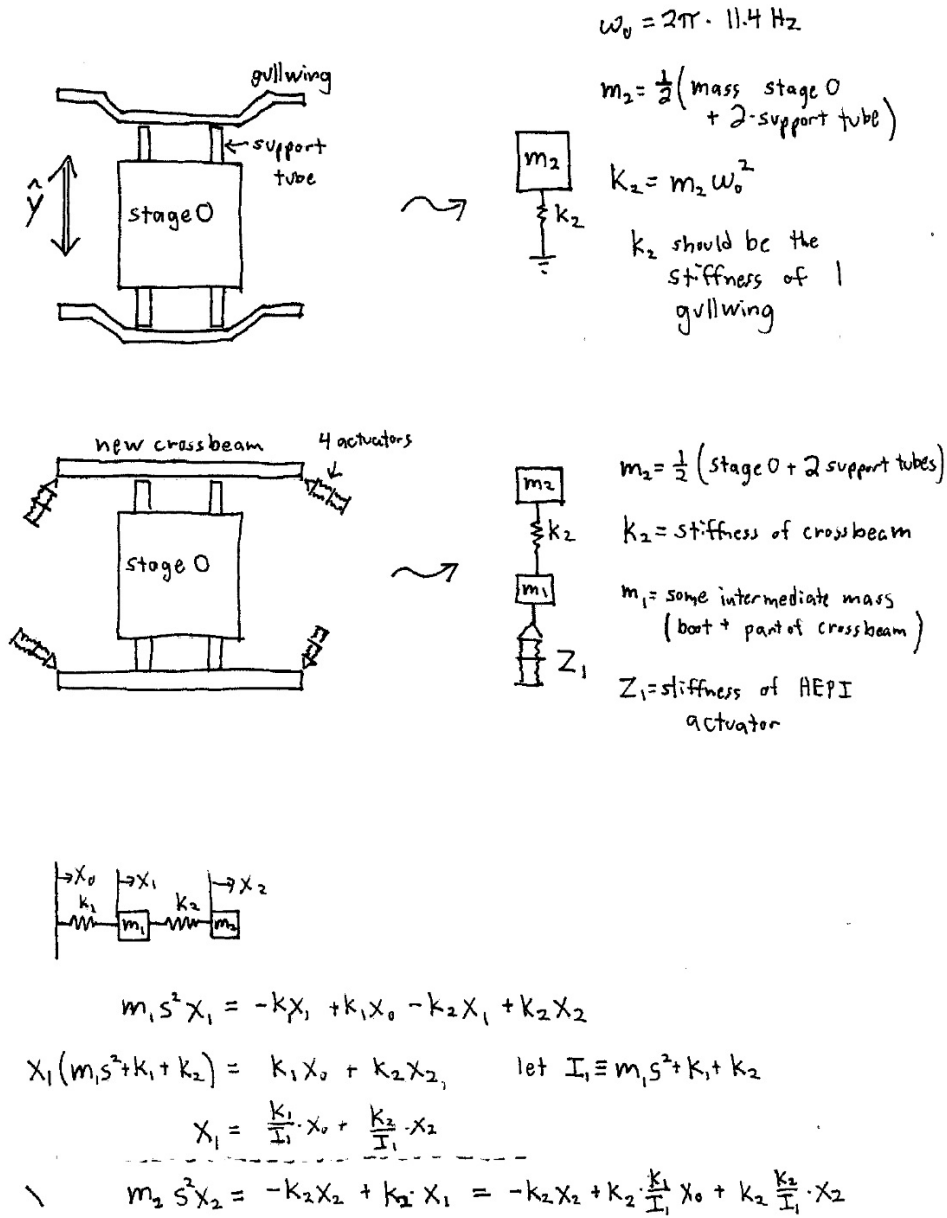 ω₀ = 2π · 11.4 Hz
gullwing
m₂ = ½ (mass stage 0
+ 2-support tube)
← support
tube
m₂
ŷ
stage 0
k₂
K₂ = m₂ ω₀²
k₂ should be the
stiffness of 1
gullwing
new crossbeam
4 actuators
m₂ = ½ (stage 0 + 2 support tubes)
m₂
k₂
k₂ = stiffness of crossbeam
stage 0
m₁
m₁ = some intermediate mass
(boot + part of crossbeam)
Z₁
Z₁ = stiffness of HEPI
actuator
→X₀ →X₁ →X₂
k₁ k₂
m₁ m₂
m₁s²X₁ = -k₁X₁ + k₁X₀ - k₂X₁ + k₂X₂
X₁(m₁s² + k₁ + k₂) = k₁X₀ + k₂X₂, let I₁ ≡ m₁s² + k₁ + k₂
X₁ = k₁/I₁ · X₀ + k₂/I₁ · X₂
m₂ s²X₂ = -k₂X₂ + k₂ · X₁ = -k₂X₂ + k₂ · k₁/I₁ X₀ + k₂ k₂/I₁ · X₂